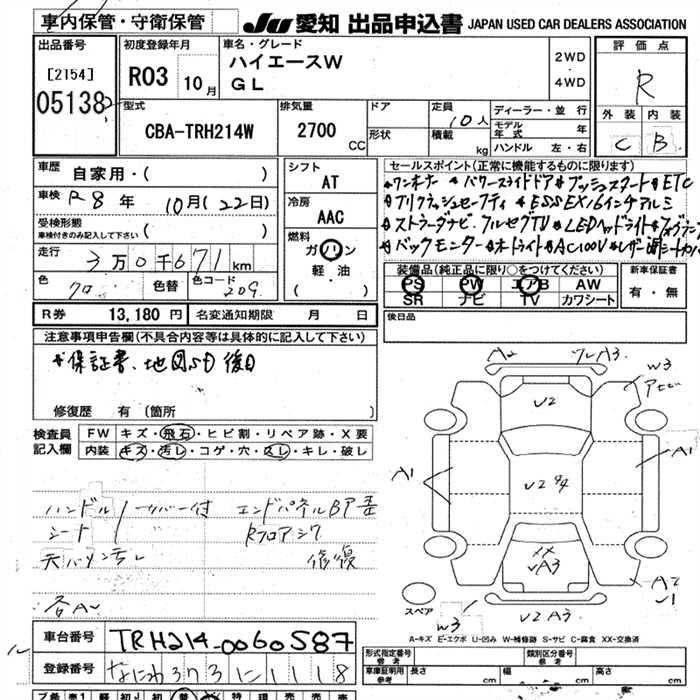 車内保管・守衛保管
JU 愛知 出品申込書 JAPAN USED CAR DEALERS ASSOCIATION
出品番号
[2154]
05138
初度登録年月
R03 10月
車名・グレード
ハイエースW
GL
2WD
・
4WD
評価点
R
外装 内装
C B
型式
CBA-TRH214W
排気量
2700 CC
ドア
形状
定員 10人
積載 kg
ディーラー・並行
モデル年式 年
ハンドル 左・右
車歴 自家用・( )
車検 R8年 10月(22日)
受検形態
車検付きのみ記入して下さい ( )
走行 3万0千671km
色 クロ 色替 色コード 209
シフト
AT
冷房
AAC
燃料
ガソリン
軽・油
( )
セールスポイント(正常に機能するものに限ります)
*ワンオーナー *パワースライドドア *プッシュスタート *ETC
*プリクラッシュセーフティ *ESSEX16インチアルミ
*ストラーダナビ、フルセグTV *LEDヘッドライト *フォグランプ
*バックモニター *オートライト *AC100V *レザー調シートカバー
装備品(純正品に限り○をつけてください)
PS PW エアB AW
SR ナビ TV カワシート
新車保証書
有・無
R券 13,180円 名変通知期限 月 日
後日品
注意事項申告欄(不具合内容等は具体的に記入して下さい)
*保証書、地図SD後日
修復歴 有(箇所 )
検査員記入欄
FW キズ・飛石・ヒビ割・リペア跡・X要
内装 キズ・汚レ・コゲ・穴・スレ・キレ・破レ
ハンドル
シート
シルバー付
エンドパネルBP歪
Rフロアシワ
修復
各A
A2 フレA3
W3
アセビ
V2
A1
A1
V2 94
XX
VA3
A2
V1
スペア
W3 V2A3
A-キズ E-エクボ U-凹み W-補修跡 S-サビ C-腐食 XX-交換済
車台番号 TRH214-0060587
登録番号 なにわ373に1118
形式指定番号
参考
類別区分番号
参考
車庫証明用
参考
長さ cm 幅 cm 高さ cm